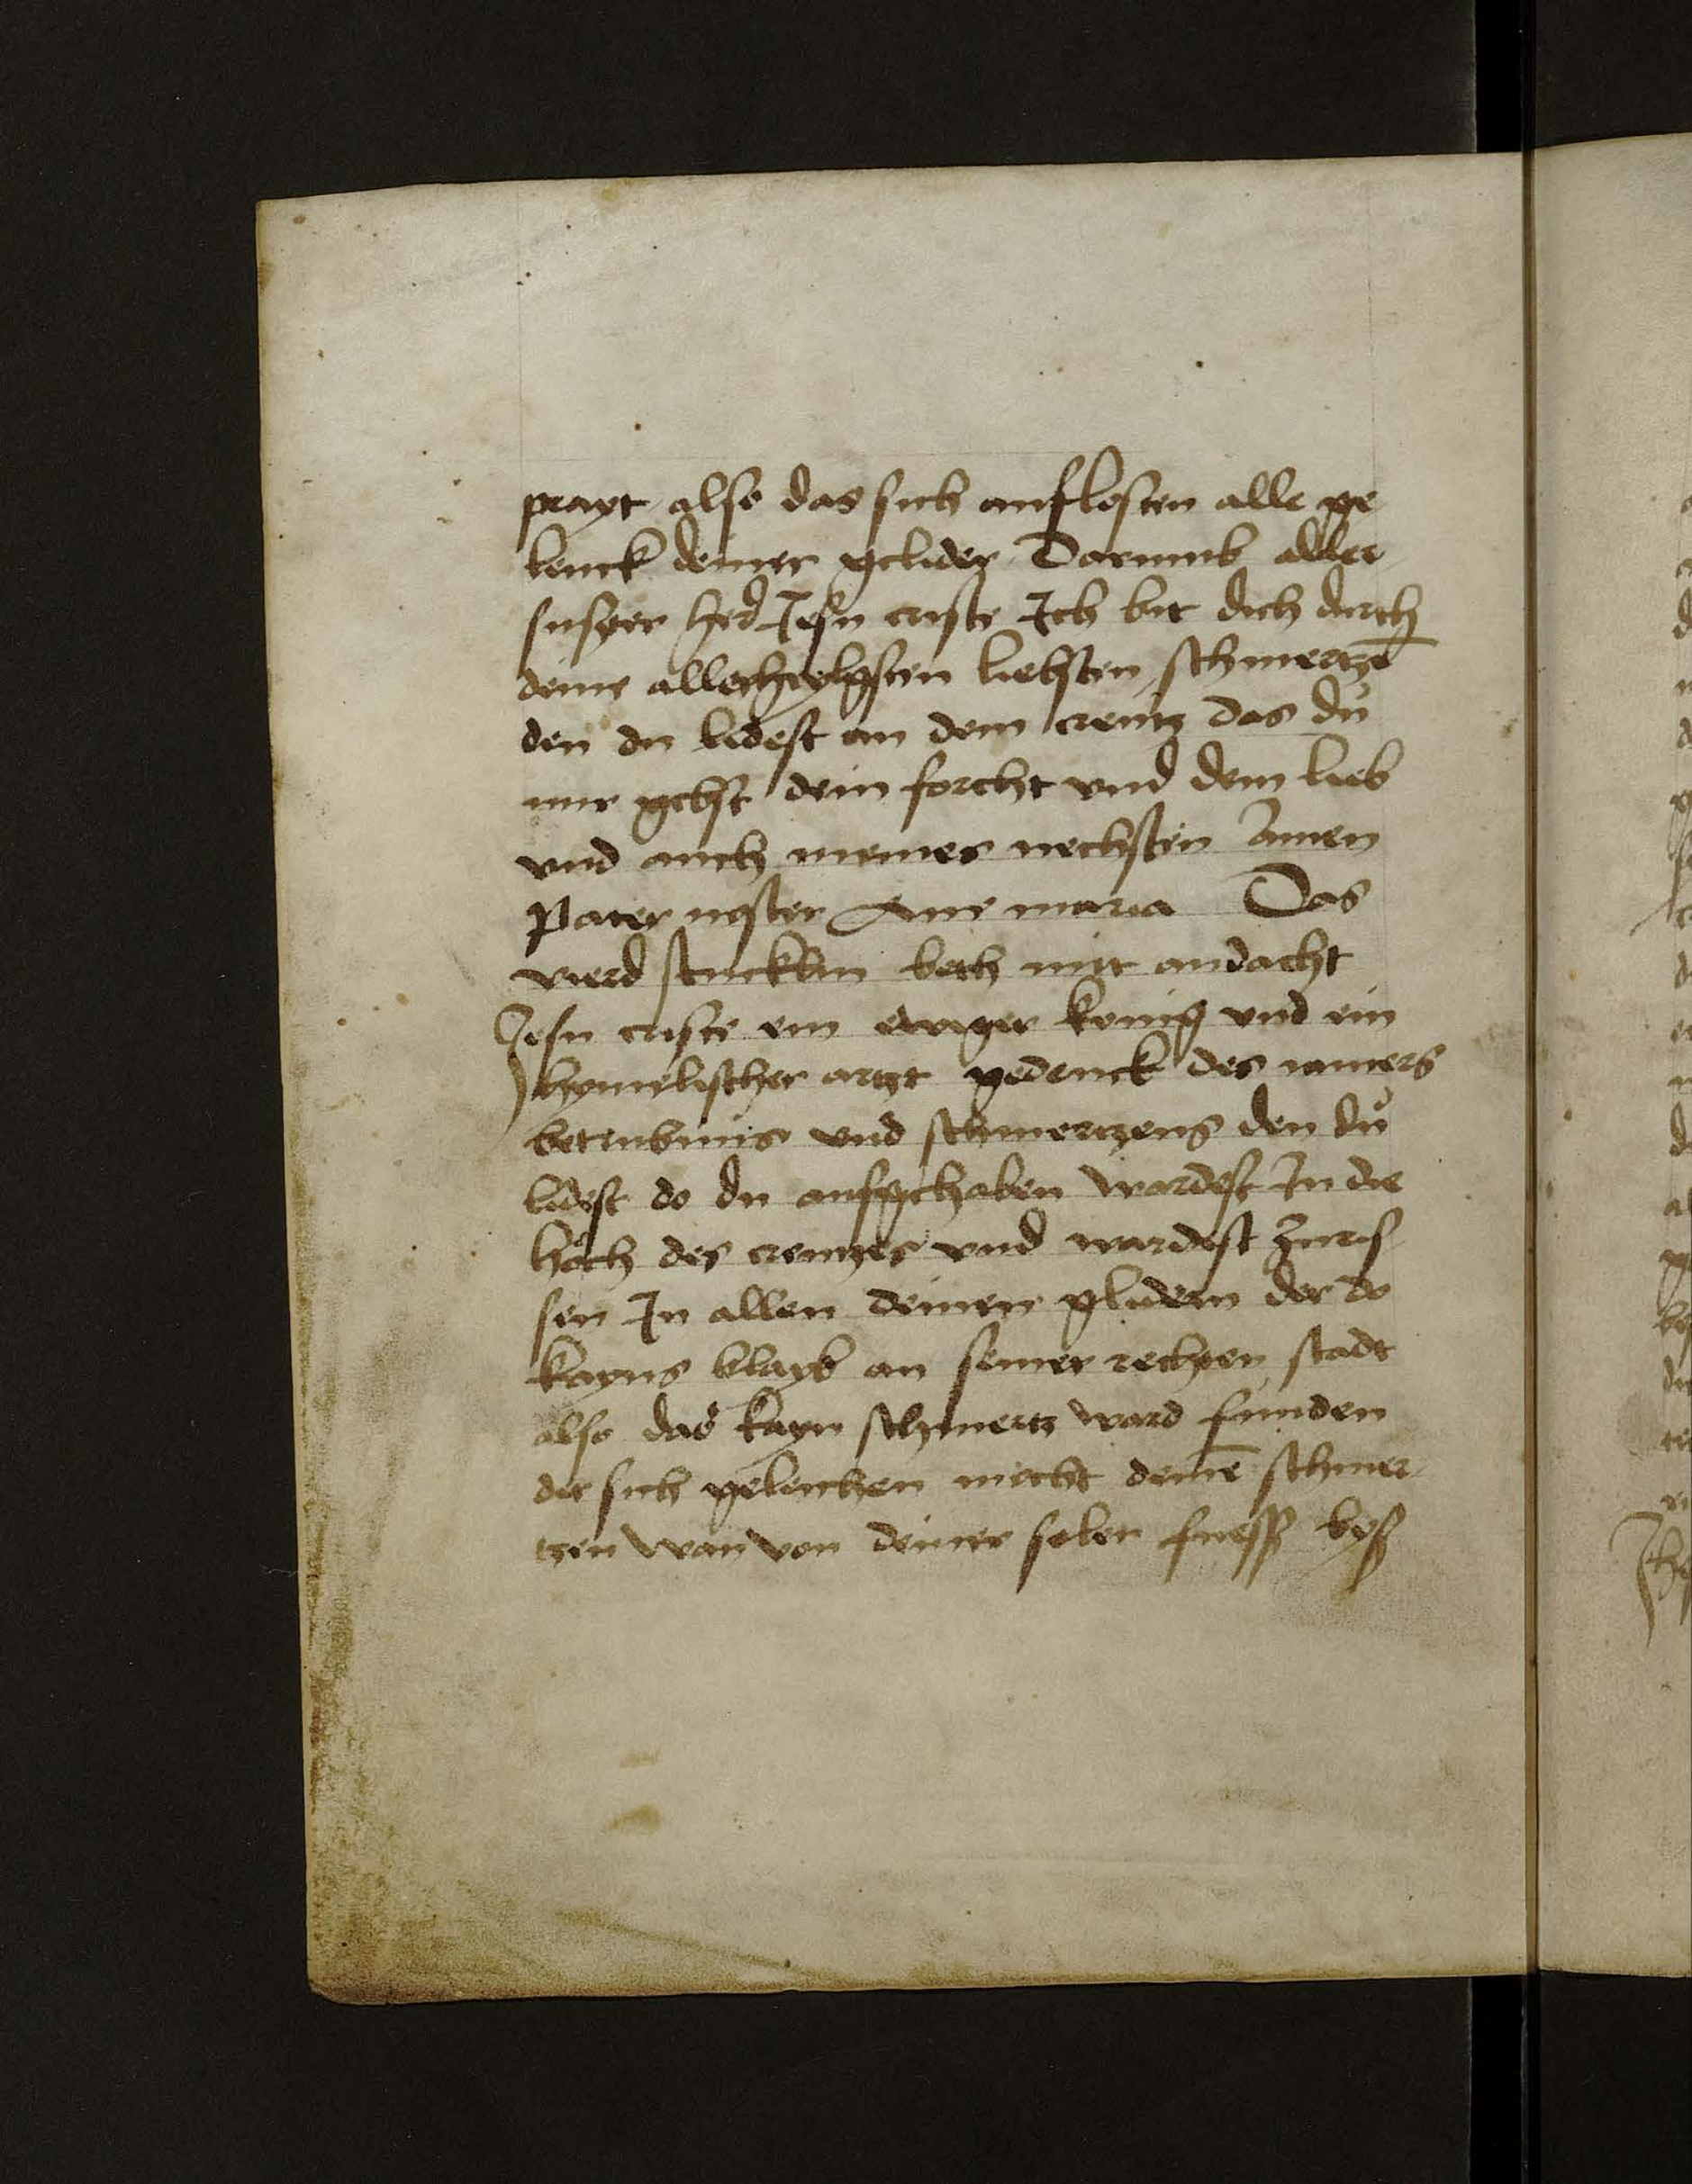 prayt also das sich auflosten alle ge
lenck deiner gelider Darumb aller
susster herr Jesu criste Ich bit dich durch
deine allerheylgsten liebsten schmertzē
den du lidest an dem creutz das dů
mir gebst dein forcht vnd dein lieb
vnd auch meines nechsten Amen
Pater noster Aue maria Das
vierd stucklin beth mit andacht
Jesu criste ein ewiger konig vnd ein
hymelischer artzt gedenck des iamers
betrubnis vnd schmertzens den dů
lidest do du aufgehaben wardest In die
höch des creutzes vnd wardest Zuris
sen In allen deinen glidern der do
kayns blayb an seiner rechten stadt
also das kayn schmertz ward funden
der sich geleichen mocht deinē schmer
tzen wan von deiner solen fuess bys